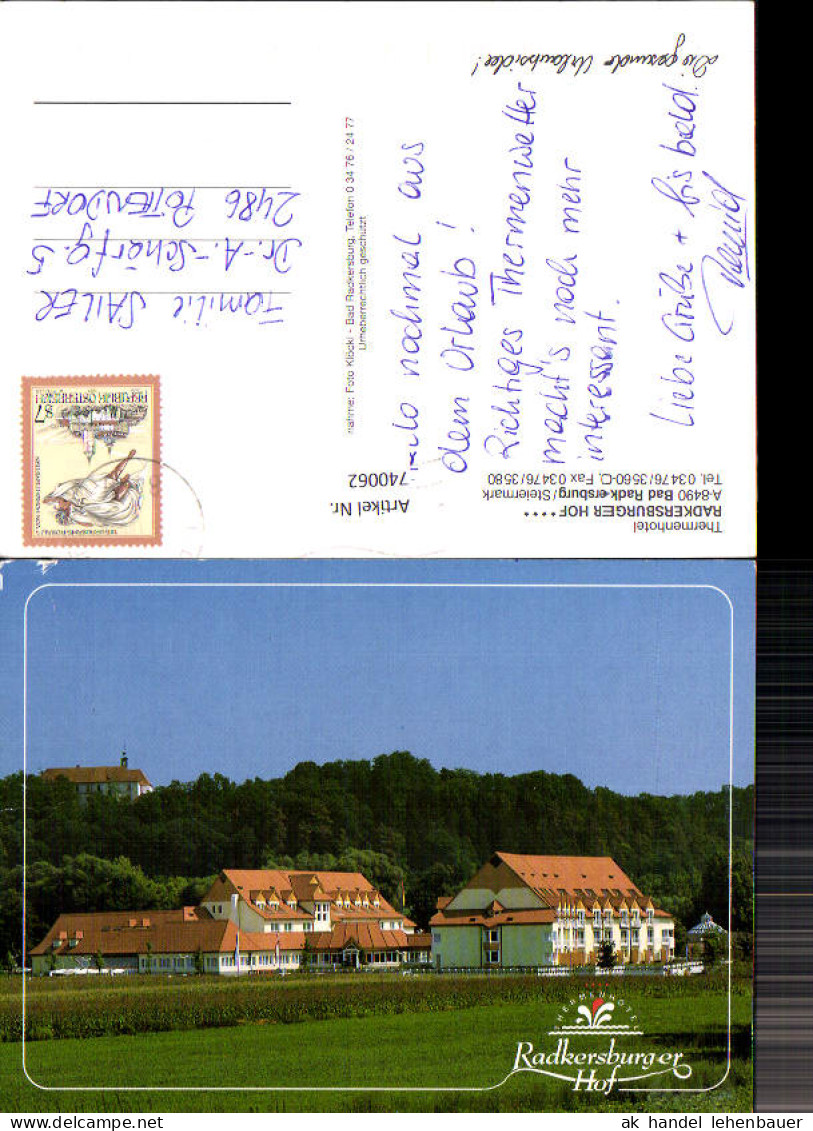 Die gesunde Urlaubsidee!
Thermenhotel
RADKERSBURGER HOF****
A-8490 Bad Radkersburg/Steiermark
Tel. 03476/3560-0, Fax 03476/3580
Artikel Nr.
740062
Hallo nochmal aus
dem Urlaub!
Richtiges Thermenwetter
macht's noch mehr
interessant.
Liebe Grüße + bis bald.
nahme: Foto Klöckl - Bad Radkersburg, Telefon 0 34 76 / 24 77
Urheberrechtlich geschützt
REPUBLIK ÖSTERREICH
S 7
Familie SAILER
Dr.-A.-Schärfg. 5
2486 POTTENDORF
THERMENHOTEL
Radkersburger
Hof
ak handel lehenbauer